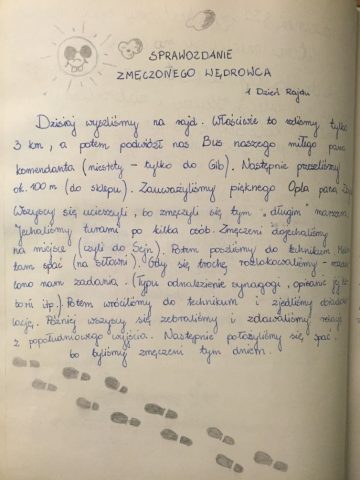 SPRAWOZDANIE
ZMĘCZONEGO WĘDROWCA
1 Dzień Rajdu
Dzisiaj wyszliśmy na rajd. Właściwie to szliśmy tylko
3 km, a potem podwiózł nas Bus naszego miłego pana
komendanta (niestety - tylko do Gib). Następnie przeszliśmy
ok. 100 m (do sklepu). Zauważyliśmy pięknego Opla pana
Wszyscy się ucieszyli, bo zmęczyli się tym "długim" marszem
Jechaliśmy turami po kilka osób. Zmęczeni dojechaliśmy
na miejsce (czyli do Sejn). Potem poszliśmy do technikum.
tam spać (na siłowni). Gdy się trochę rozlokowaliśmy -
tono nam zadania. (Typu odnalezienie synagogi, opisanie jej
torii itp.) Potem wróciliśmy do technikum i zjedliśmy
lację. Później wszyscy się zebraliśmy i zdawaliśmy relację
z popołudniowego wyjścia. Następnie położyliśmy się spać,
bo byliśmy zmęczeni tym dniem.